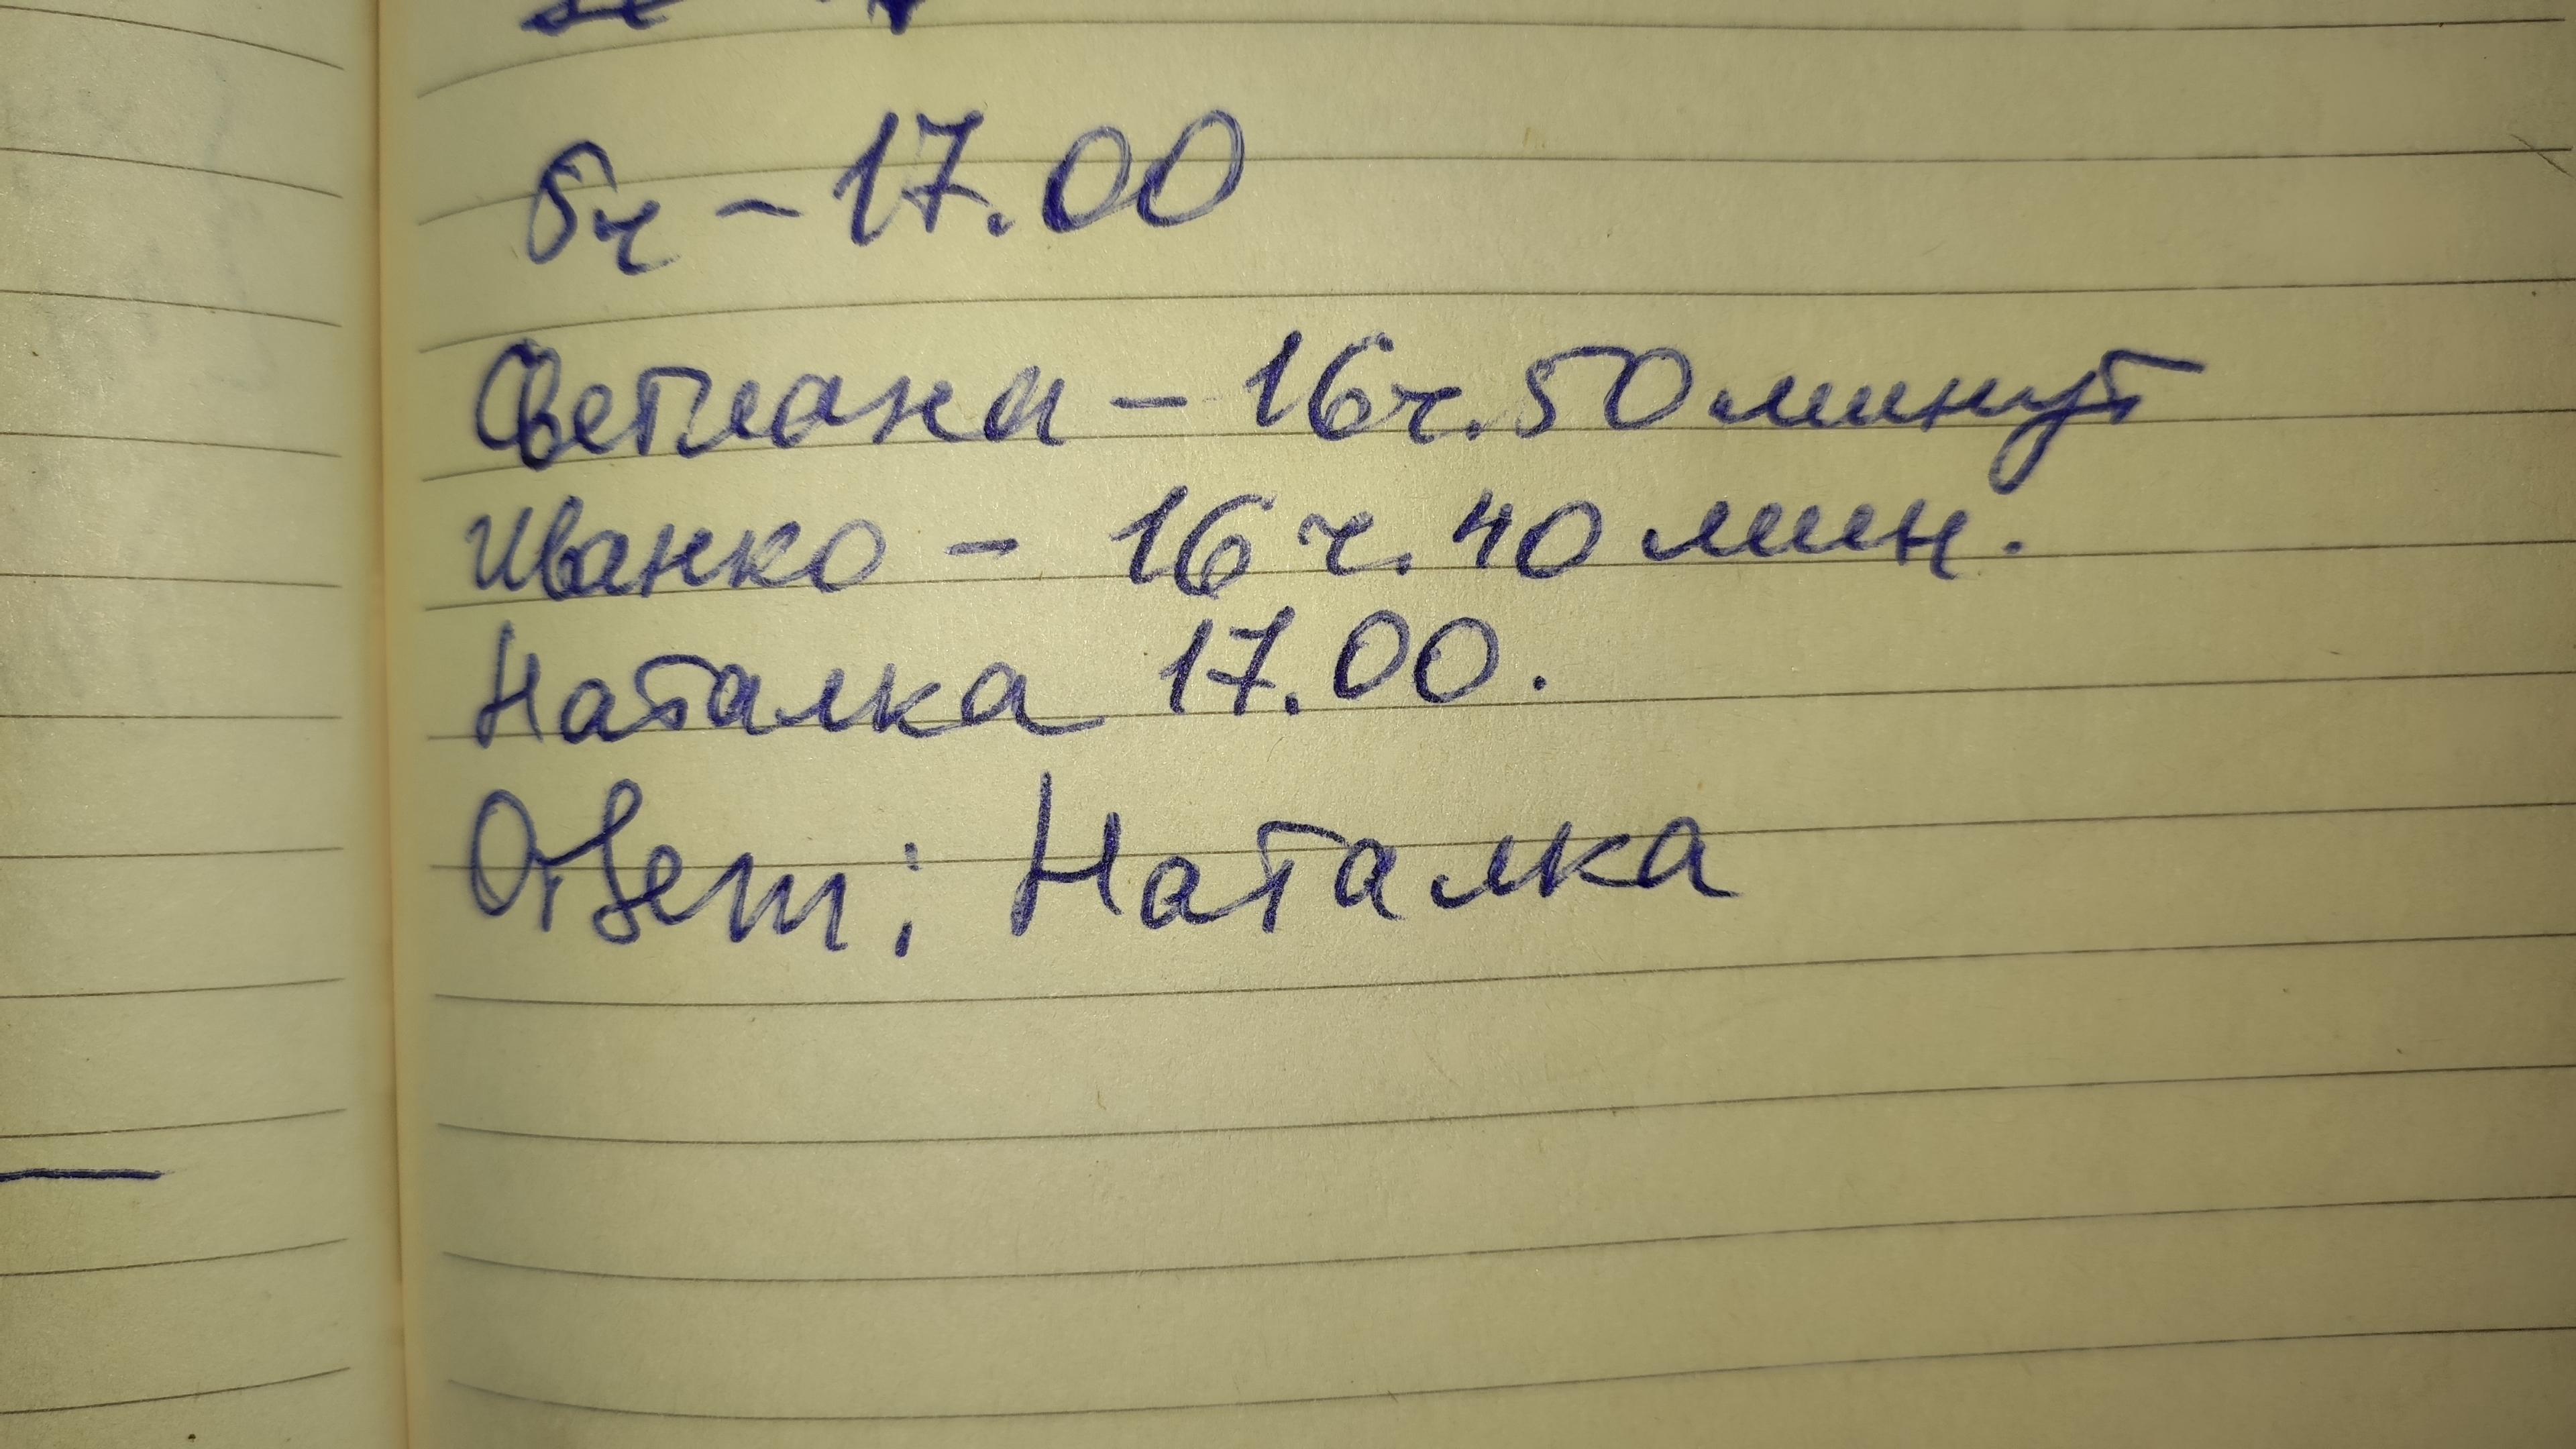 5ч - 17.00
Светлана - 16ч. 50 минут
Иванко - 16 ч. 40 мин.
Наталка 17.00.
Ответ: Наталка